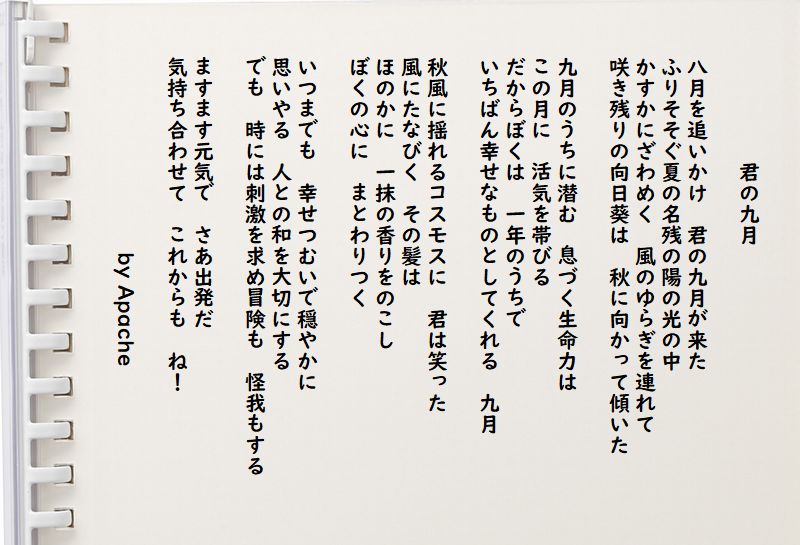 君の九月
八月を追いかけ　君の九月が来た
ふりそそぐ夏の名残の陽の光の中
かすかにざわめく　風のゆらぎを連れて
咲き残りの向日葵は　秋に向かって傾いた
九月のうちに潜む　息づく生命力は
この月に　活気を帯びる
だからぼくは　一年のうちで
いちばん幸せなものとしてくれる　九月
秋風に揺れるコスモスに　君は笑った
風にたなびく　その髪は
ほのかに　一抹の香りをのこし
ぼくの心に　まとわりつく
いつまでも　幸せつむいで穏やかに
思いやる　人との和を大切にする
でも　時には刺激を求め冒険も　怪我もする
ますます元気で　さあ出発だ
気持ち合わせて　これからも　ね！
by Apache